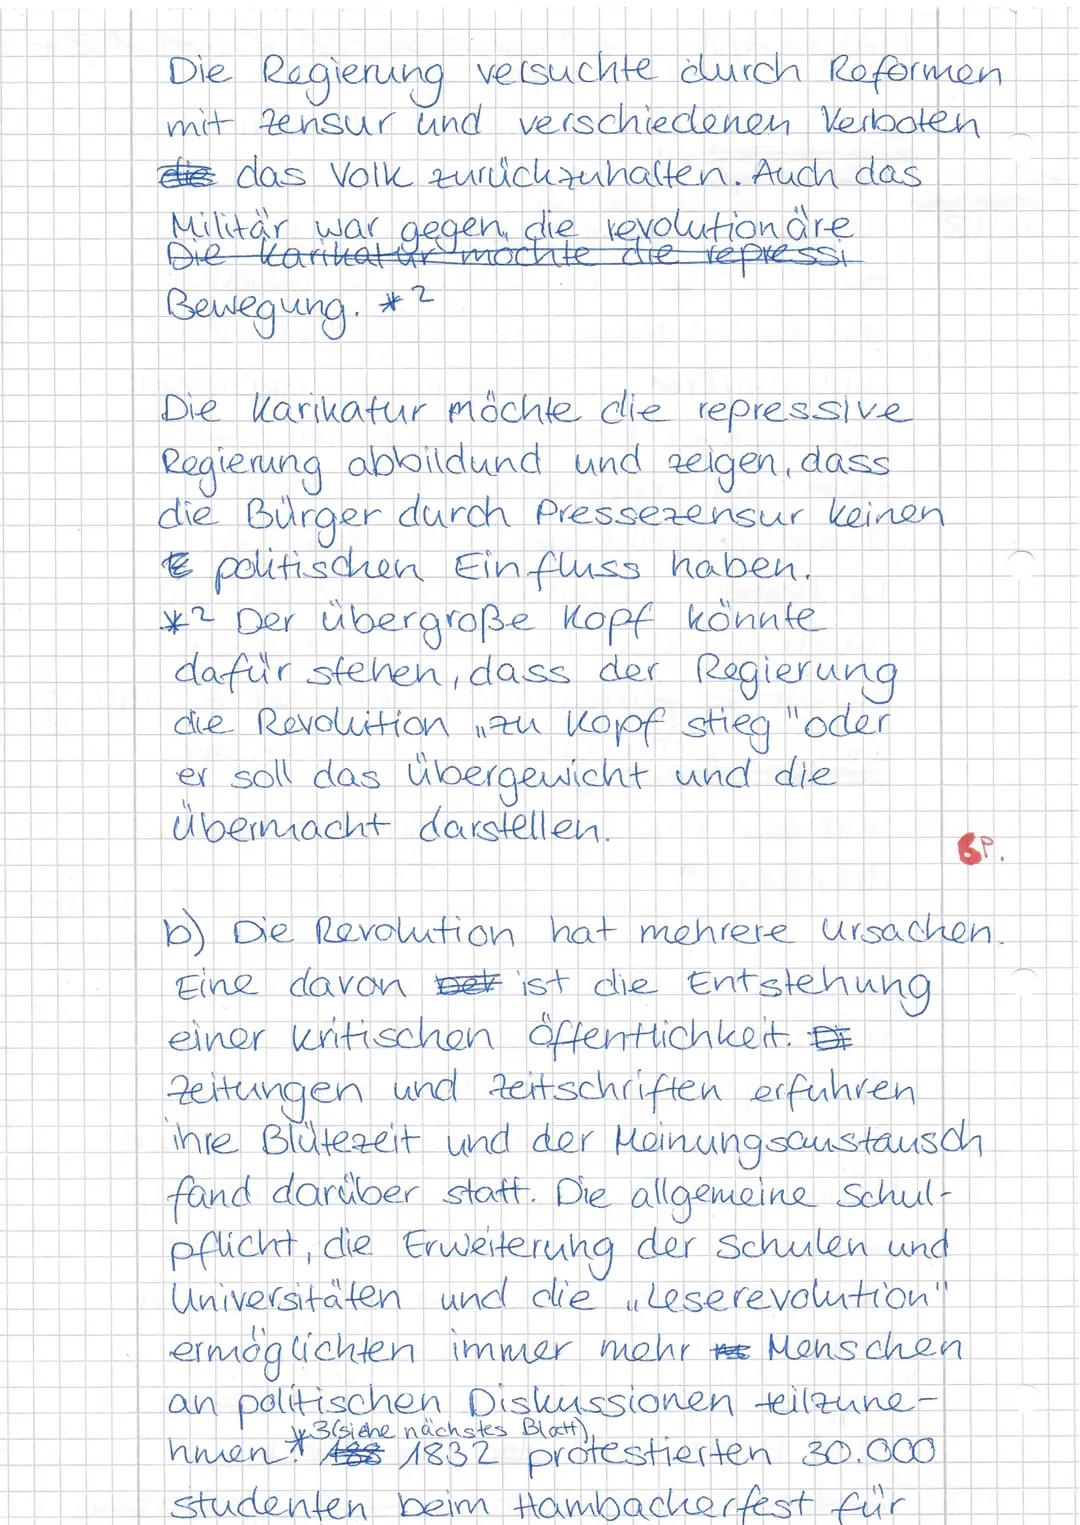 Die Regierung versuchte durch Reformen
mit Zensur und verschiedenen Verboten
die das Volk zurückzuhalten. Auch das
Militär war gegen die revolutionäre
Die Karikatur möchte die repressi
Bewegung. *2
Die Karikatur möchte die repressive
Regierung abbildund und zeigen, dass
die Bürger durch Pressezensur keinen
E politischen Einfluss haben.
*2 Der übergroße Kopf könnte
dafür stehen, dass der Regierung
die Revolution „zu Kopf stieg" oder
er soll das Übergewicht und die
Übermacht darstellen.
6P.
b) Die Revolution hat mehrere Ursachen.
Eine davon ist die Entstehung
einer kritischen Öffentlichkeit. Di
Zeitungen und Zeitschriften erfuhren
ihre Blütezeit und der Meinungsaustausch
fand darüber statt. Die allgemeine Schul-
pflicht, die Erweiterung der Schulen und
Universitäten und die „Leserevolution"
ermöglichten immer mehr Menschen
an politischen Diskussionen teilzune-
*3(siehe nächstes Blatt)
hmen. 188 1832 protestierten 30.000
Studenten beim Hambacherfest für